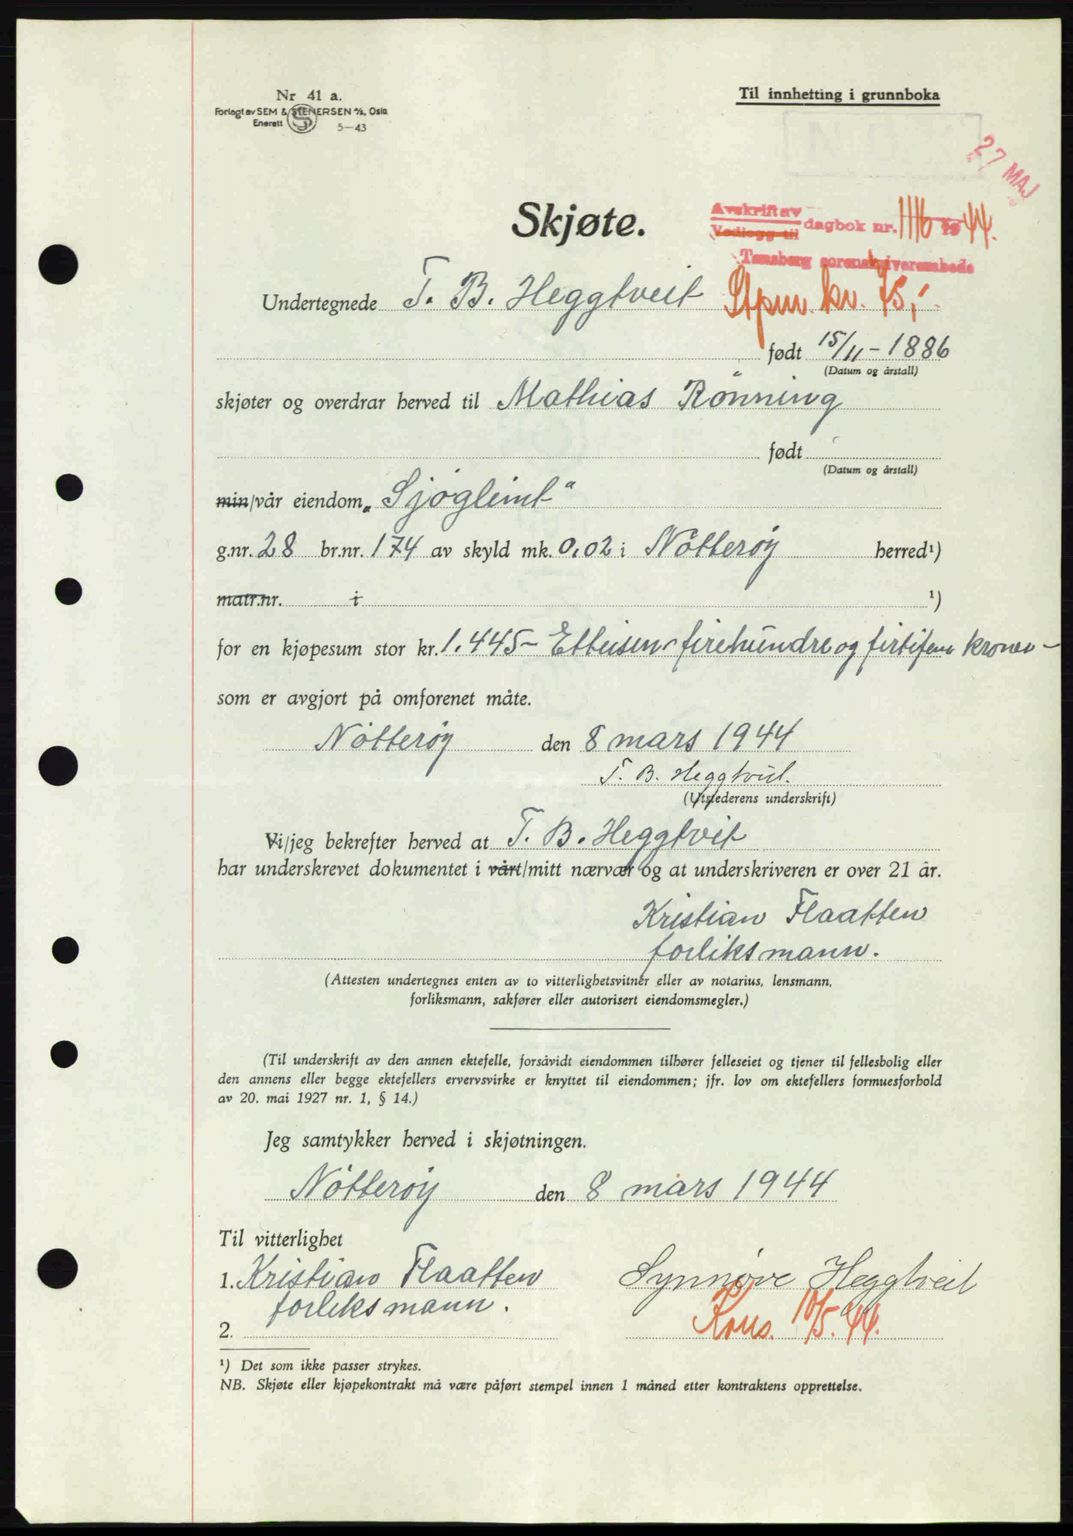 Nr 41 a.
Forlagt av SEM & STENERSEN A/S, Oslo
Enerett 5-43
Til innhefting i grunnboka
27 MAJ
Skjøte.
Avskrift av
Vedlegg til dagbok nr. 1116 19 44.
Tønsberg sorenskriverembede
Undertegnede T. B. Heggtveit Stpm. kr. 15,-
født 15/11-1886
(Datum og årstall)
skjøter og overdrar herved til Mathias Rönning
født
(Datum og årstall)
min/vår eiendom „Sjögleimt"
g.nr. 28 br.nr. 174 av skyld mk. 0,02 i Nötteröy herred¹)
matr.nr. i ¹)
for en kjøpesum stor kr. 1.445- Ettusen firehundre og førtifem kroner -
som er avgjort på omforenet måte.
Nötteröy den 8 mars 1944
T. B. Heggtveit.
(Utstederens underskrift)
Vi/jeg bekrefter herved at T. B. Heggtveit
har underskrevet dokumentet i vårt/mitt nærvær og at underskriveren er over 21 år.
Kristian Flaatten
forliksmann.
(Attesten undertegnes enten av to vitterlighetsvitner eller av notarius, lensmann,
forliksmann, sakfører eller autorisert eiendomsmegler.)
(Til underskrift av den annen ektefelle, forsåvidt eiendommen tilhører felleseiet og tjener til fellesbolig eller
den annens eller begge ektefellers ervervsvirke er knyttet til eiendommen; jfr. lov om ektefellers formuesforhold
av 20. mai 1927 nr. 1, § 14.)
Jeg samtykker herved i skjøtningen.
Nötteröy den 8 mars 1944
Til vitterlighet
1. Kristian Flaatten Synnøve Heggtveit
forliksmann. Kons. 10/5.44.
2.
¹) Det som ikke passer strykes.
NB. Skjøte eller kjøpekontrakt må være påført stempel innen 1 måned etter kontraktens opprettelse.